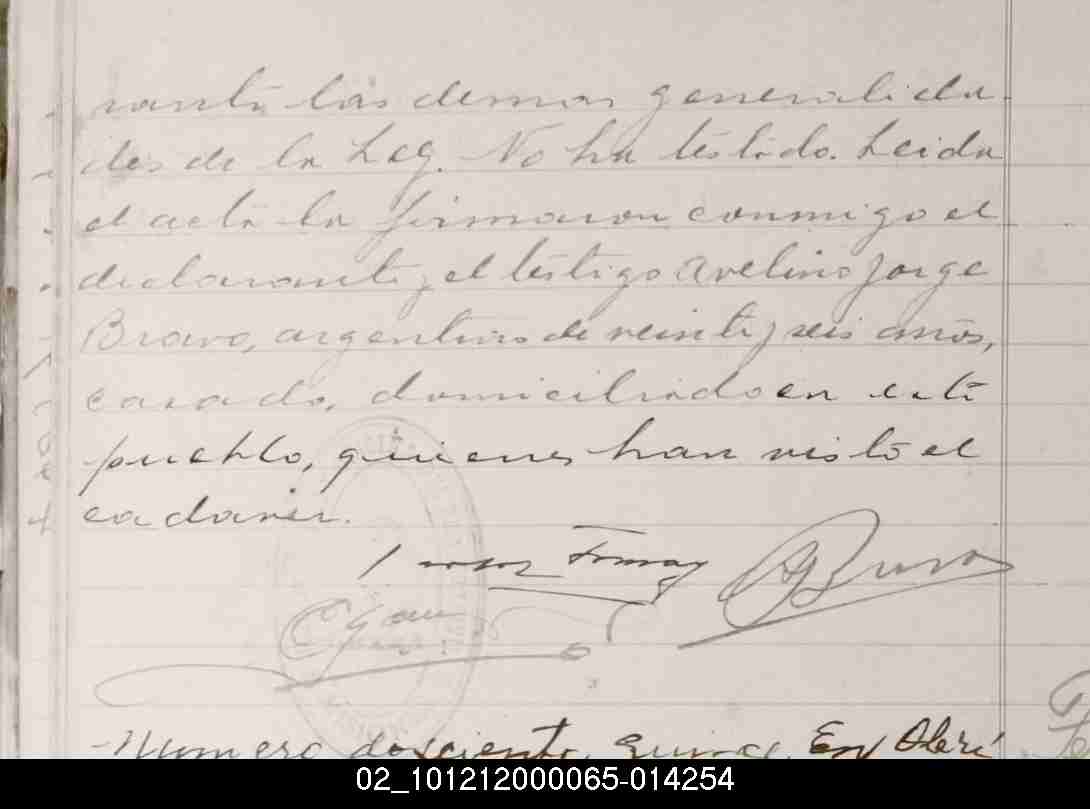 rante las demas generalida
des de la Ley. No ha testado. Leida
el acta la firmaron conmigo el
declarante y el testigo Avelino Jorge
Bravo, argentino de veinte y seis anos,
casado, domiciliado en este
pueblo, quienes han visto el
cadaver.
ABravo
Numero doscientos quince. En Oberí
02_101212000065-014254